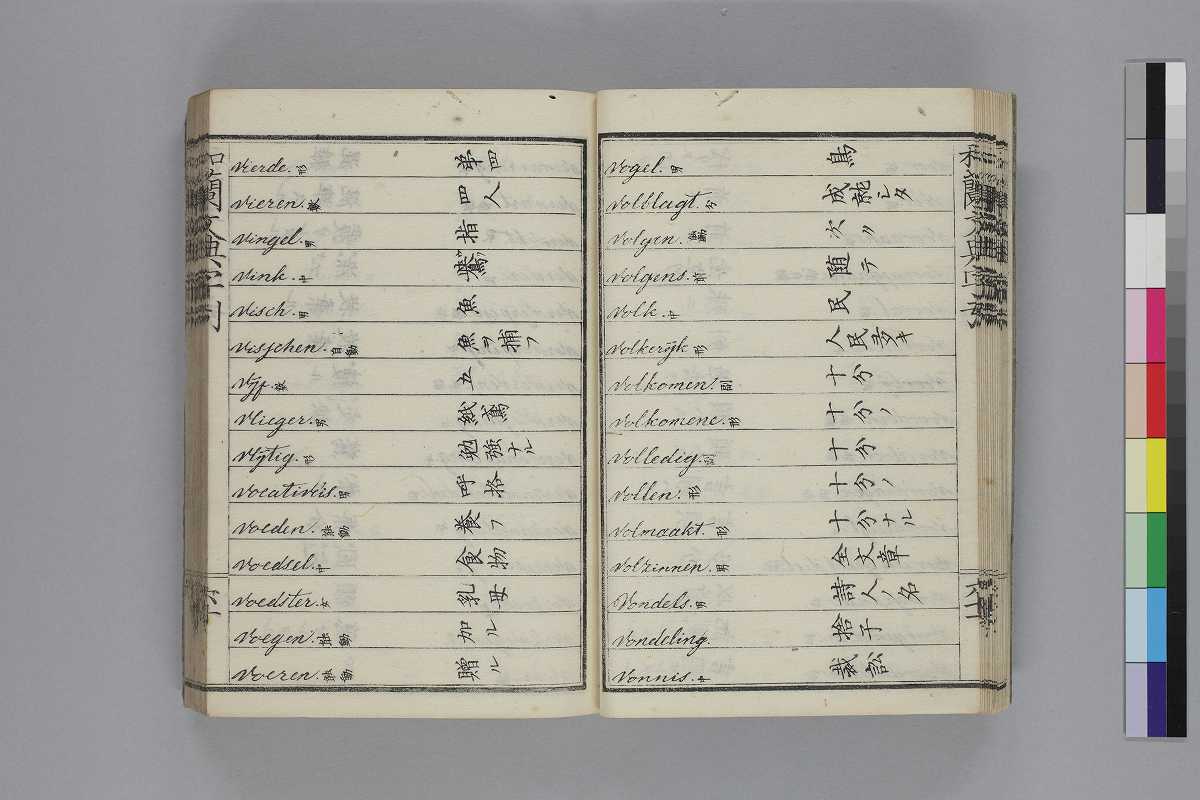 Vierde. 形 第四
Vieren. 數 四人
Vingel. 男 指
Vink. 中
Visch. 男 魚
Visschen. 自動 魚ヲ捕フ
Vijf. 數 五
Vlieger. 男 紙鳶
Vlijtig. 形 勉強ナル
Vocativus. 男 呼格
Voeden. 動 養フ
Voedsel. 中 食物
Voedster. 女 乳母
Voegen. 動 加ル
Voeren. 動 贈ル
Vogel. 男 鳥
Volblagt. 分 成就シタ
Volgen. 動 次〃
Volgens. 前 随テ
Volk. 中 民
Volkerijk 形 人民多キ
Volkomen. 副 十分
Volkomene. 形 十分ノ
Volledig. 副 十分
Vollen. 形 十分ノ
Volmaakt. 形 十分ナル
Volzinnen. 男 全文章
Vondels. 男 詩人ノ名
Vondeling. 捨子
Vonnis. 中 裁訟